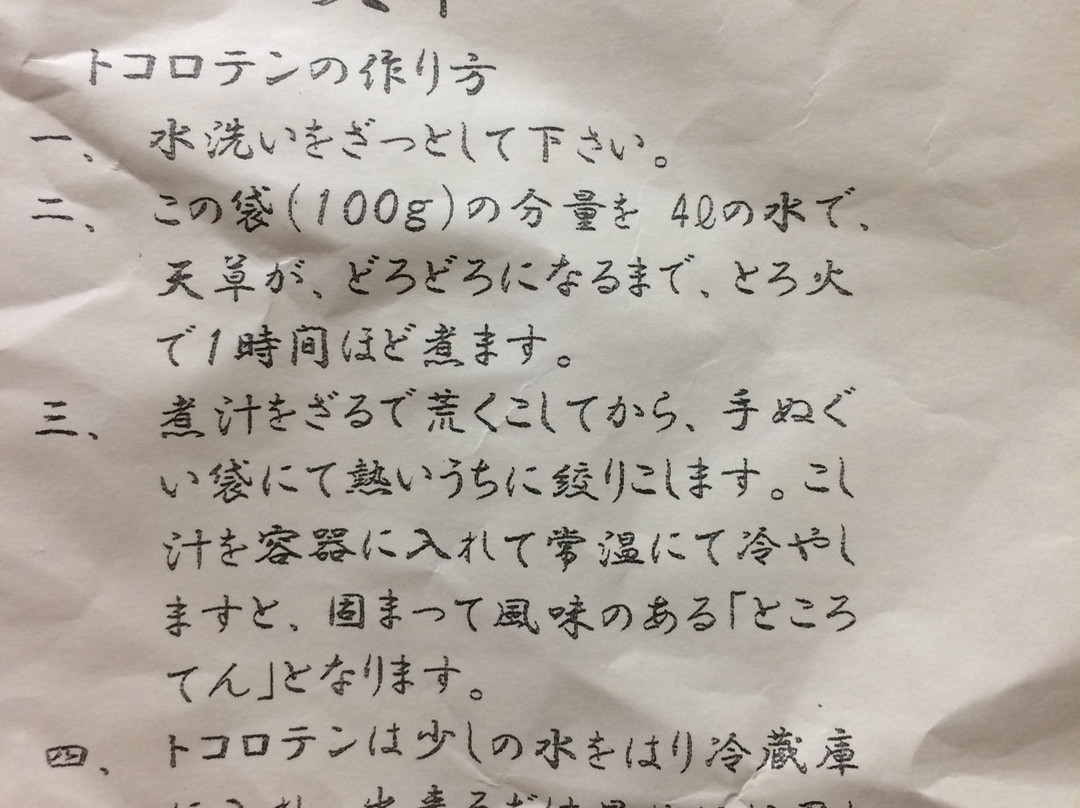 トコロテンの作り方
一、 水洗いをざっとして下さい。
二、 この袋(100g)の分量を 4ℓの水で、
天草が、どろどろになるまで、とろ火
で1時間ほど煮ます。
三、 煮汁をざるで荒くこしてから、手ぬぐ
い袋にて熱いうちに絞りこします。こし
汁を容器に入れて常温にて冷やし
ますと、固まって風味のある「ところ
てん」となります。
四、 トコロテンは少しの水をはり冷蔵庫